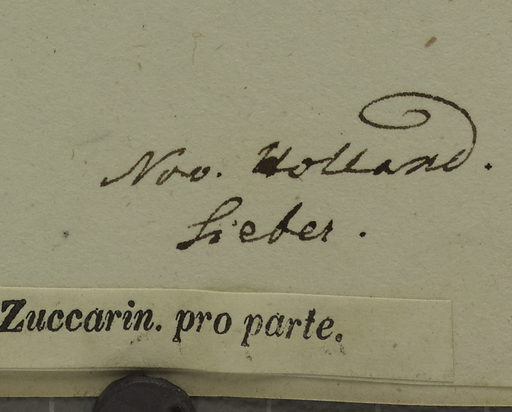 Nov. Holland.
Sieber.
Zuccarin. pro parte.